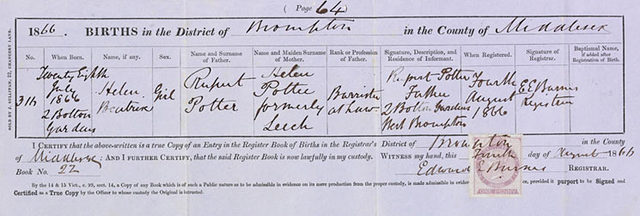 ( Page 64 )
1866. BIRTHS in the District of Brompton in the County of Middlesex
No. When Born. Name, if any. Sex. Name and Surname of Father. Name and Maiden Surname of Mother. Rank or Profession of Father. Signature, Description, and Residence of Informant. When Registered. Signature of Registrar. Baptismal Name, if added after Registration of Birth.
Twenty Eighth July 1866 2 Bolton Gardens
Helen Beatrix
Girl
Rupert Potter
Helen Potter formerly Leech
Barrister at Law
Rupert Potter Father 2 Bolton Gardens West Brompton
Fourth August 1866
E E Burnes Registrar
I CERTIFY that the above-written is a true Copy of an Entry in the Register Book of Births in the Registrar's District of Brompton in the County
of Middlesex: AND I FURTHER CERTIFY, that the said Register Book is now lawfully in my custody. WITNESS my hand, this Fourth day of August 1866
Book No. 22 Edward E Burnes REGISTRAR.
By the 14 & 15 Vict. c. 99, sect. 14, a Copy of any Book which is of such a Public nature as to be admissible in evidence on its mere production from the proper custody, is made admissible in evidence provided it purport to be Signed and
Certified as a True Copy by the Officer to whose custody the Original is intrusted.